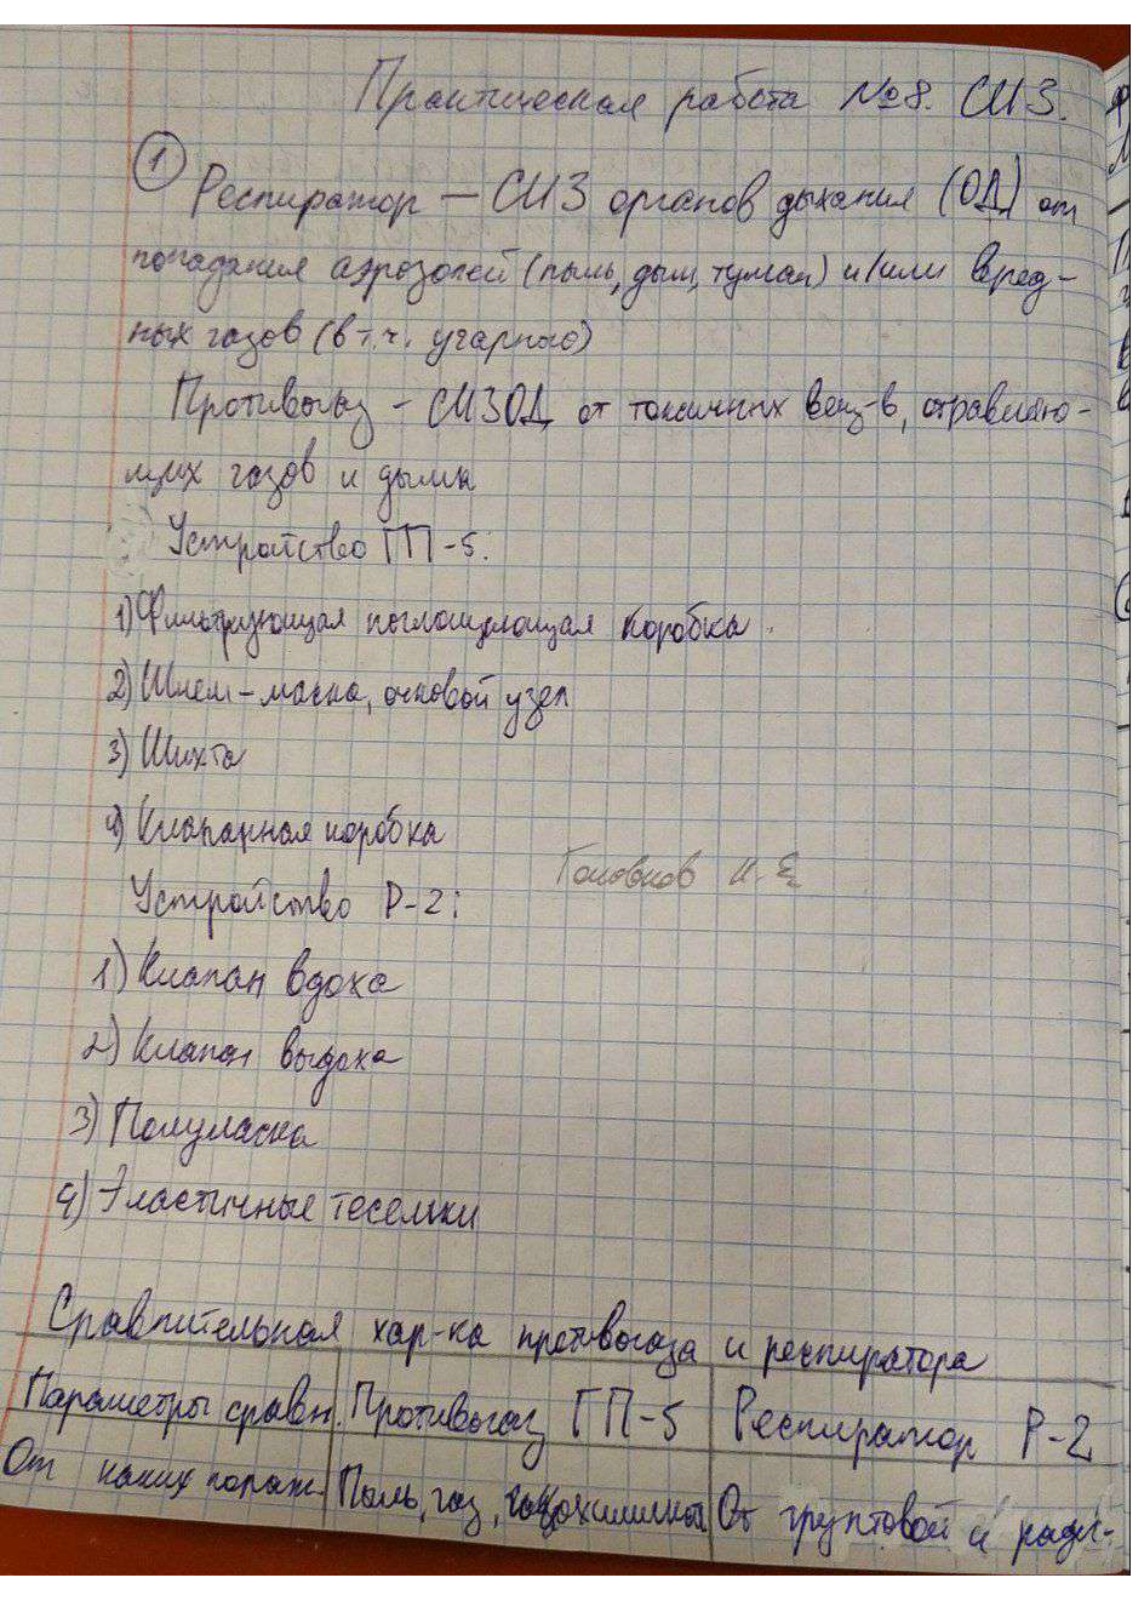 Практическая работа №8. СИЗ.
① Респиратор — СИЗ органов дыхания (ОД) от
попадания аэрозолей (пыль, дым, туман) и/или вред-
ных газов (в т.ч. угарного)
Противогаз - СИЗОД от токсичных вещ-в, отравляю-
щих газов и дыма
Устройство ГП-5:
1) Фильтрующая поглощающая коробка.
2) Шлем-маска, очковой узел
3) Шихта
4) Клапанная коробка
Головков И.Е.
Устройство Р-2:
1) Клапан вдоха
2) Клапан выдоха
3) Полумаска
4) Эластичные тесемки
Сравнительная хар-ка противогаза и респиратора
Параметры сравн. Противогаз ГП-5 Респиратор Р-2
От каких пораж. Пыль, газ, От грунтовой и ради-